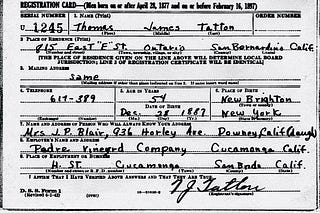 REGISTRATION CARD—(Men born on or after April 28, 1877 and on or before February 16, 1897)
SERIAL NUMBER 1. NAME (Print) ORDER NUMBER
U 1245 Thomas James Tatton
(First) (Middle) (Last)
2. PLACE OF RESIDENCE (Print)
915 East "E" St. Ontario San Bernardino Calif.
(Number and street) (Town, township, village, or city) (County) (State)
[THE PLACE OF RESIDENCE GIVEN ON THE LINE ABOVE WILL DETERMINE LOCAL BOARD
JURISDICTION; LINE 2 OF REGISTRATION CERTIFICATE WILL BE IDENTICAL]
3. MAILING ADDRESS
Same
[Mailing address if other than place indicated on line 2. If same insert word same]
4. TELEPHONE 5. AGE IN YEARS 6. PLACE OF BIRTH
617-389 54 New Brighton
DATE OF BIRTH (Town or county)
Dec. 28 1887 New York
(Exchange) (Number) (Mo.) (Day) (Yr.) (State or country)
7. NAME AND ADDRESS OF PERSON WHO WILL ALWAYS KNOW YOUR ADDRESS
Mrs J.P. Blair, 936 Horley Ave. Downey, Calif
8. EMPLOYER'S NAME AND ADDRESS
Padre Vineyrd Company Cucamonga Calif.
9. PLACE OF EMPLOYMENT OR BUSINESS
H. St. Cucamonga San Brdo Calif.
(Number and street or R. F. D. number) (Town) (County) (State)
I AFFIRM THAT I HAVE VERIFIED ABOVE ANSWERS AND THAT THEY ARE TRUE.
D. S. S. Form 1
(Revised 4-1-42) (over)
T J Tatton
(Registrant's signature)